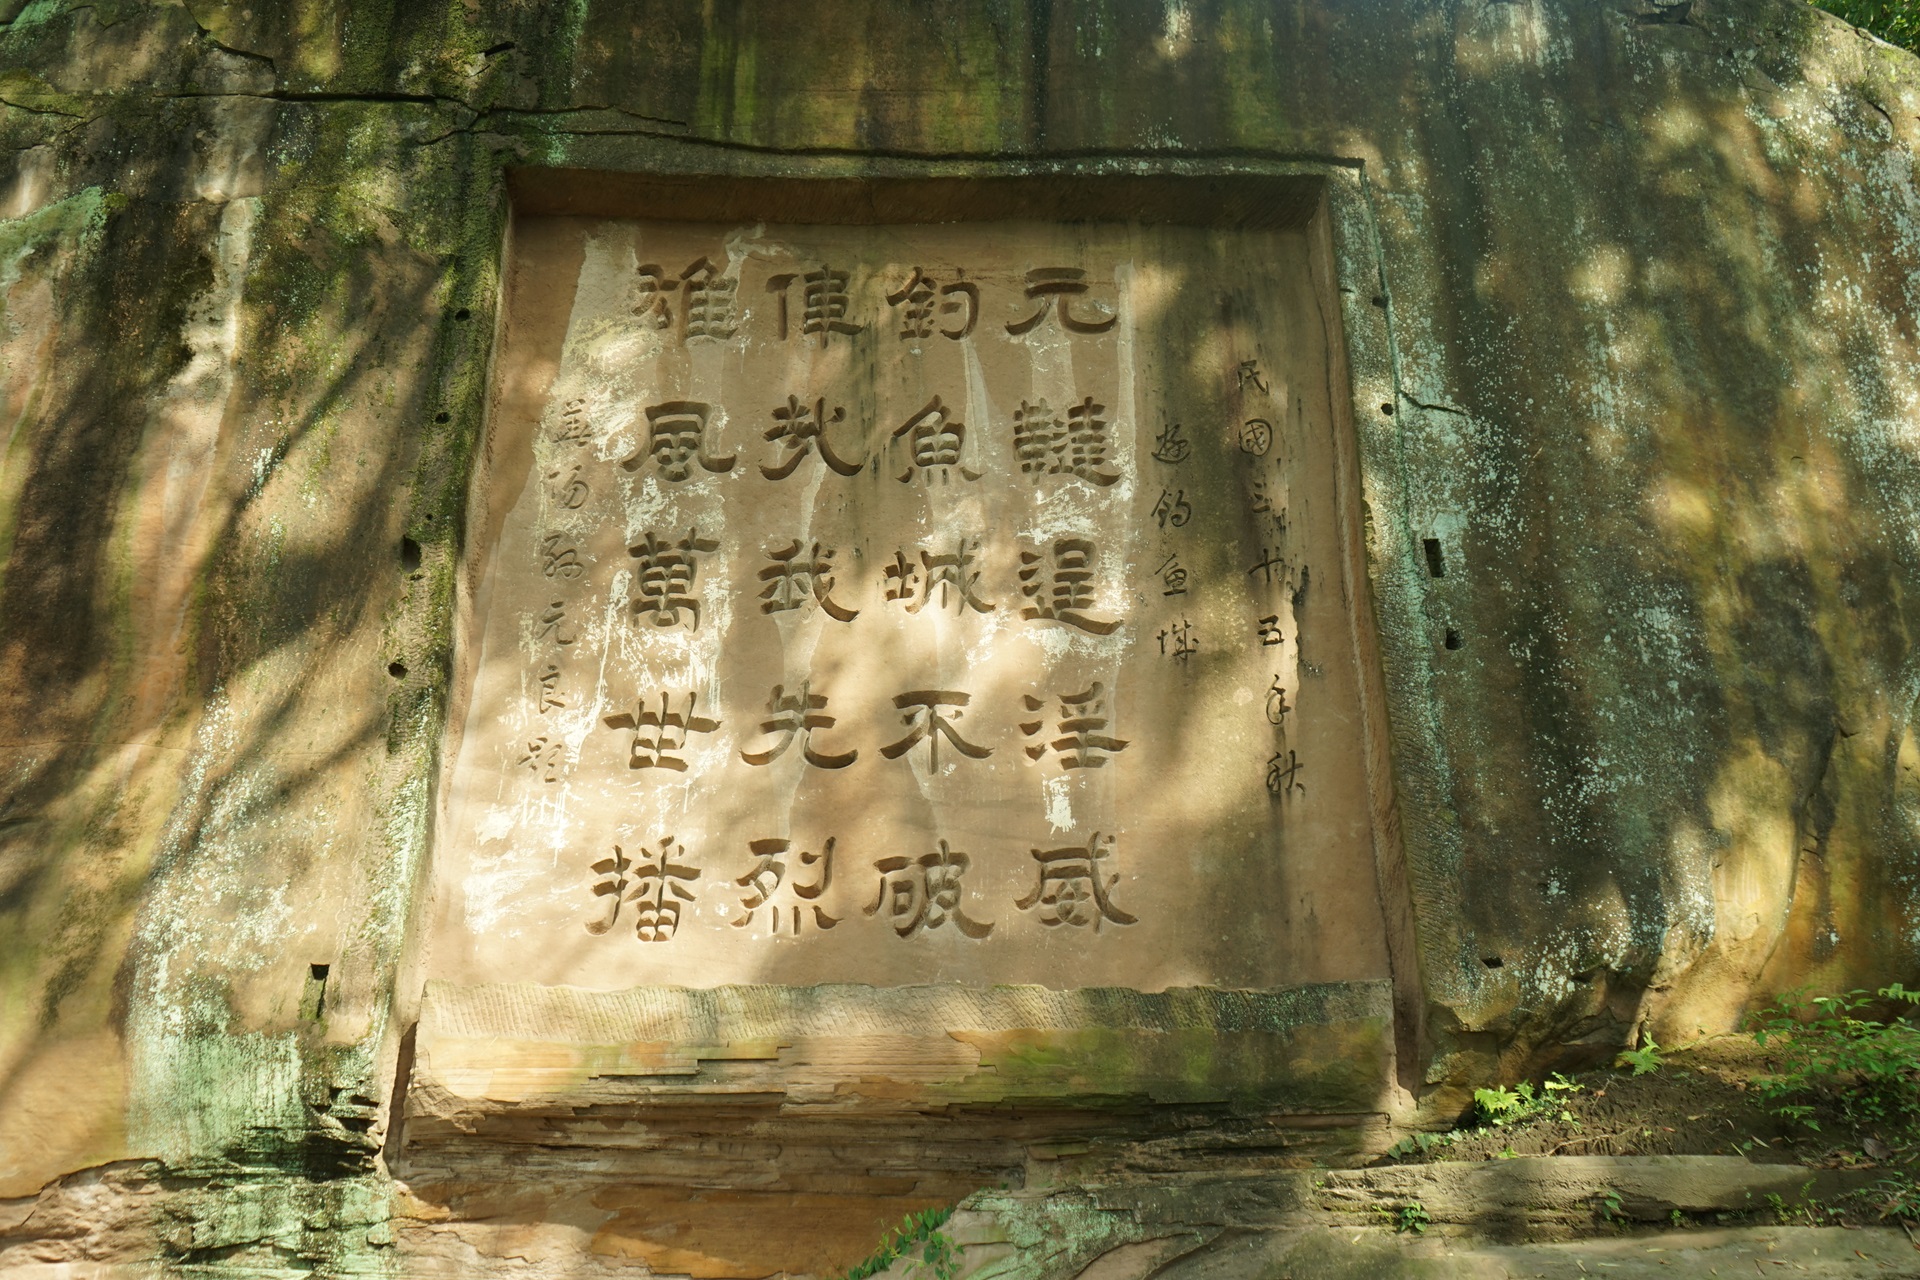 民國三十五年秋
遊釣魚城
元韃逞淫威
釣魚城不破
偉哉我先烈
雄風萬世播
益陽孫元良題